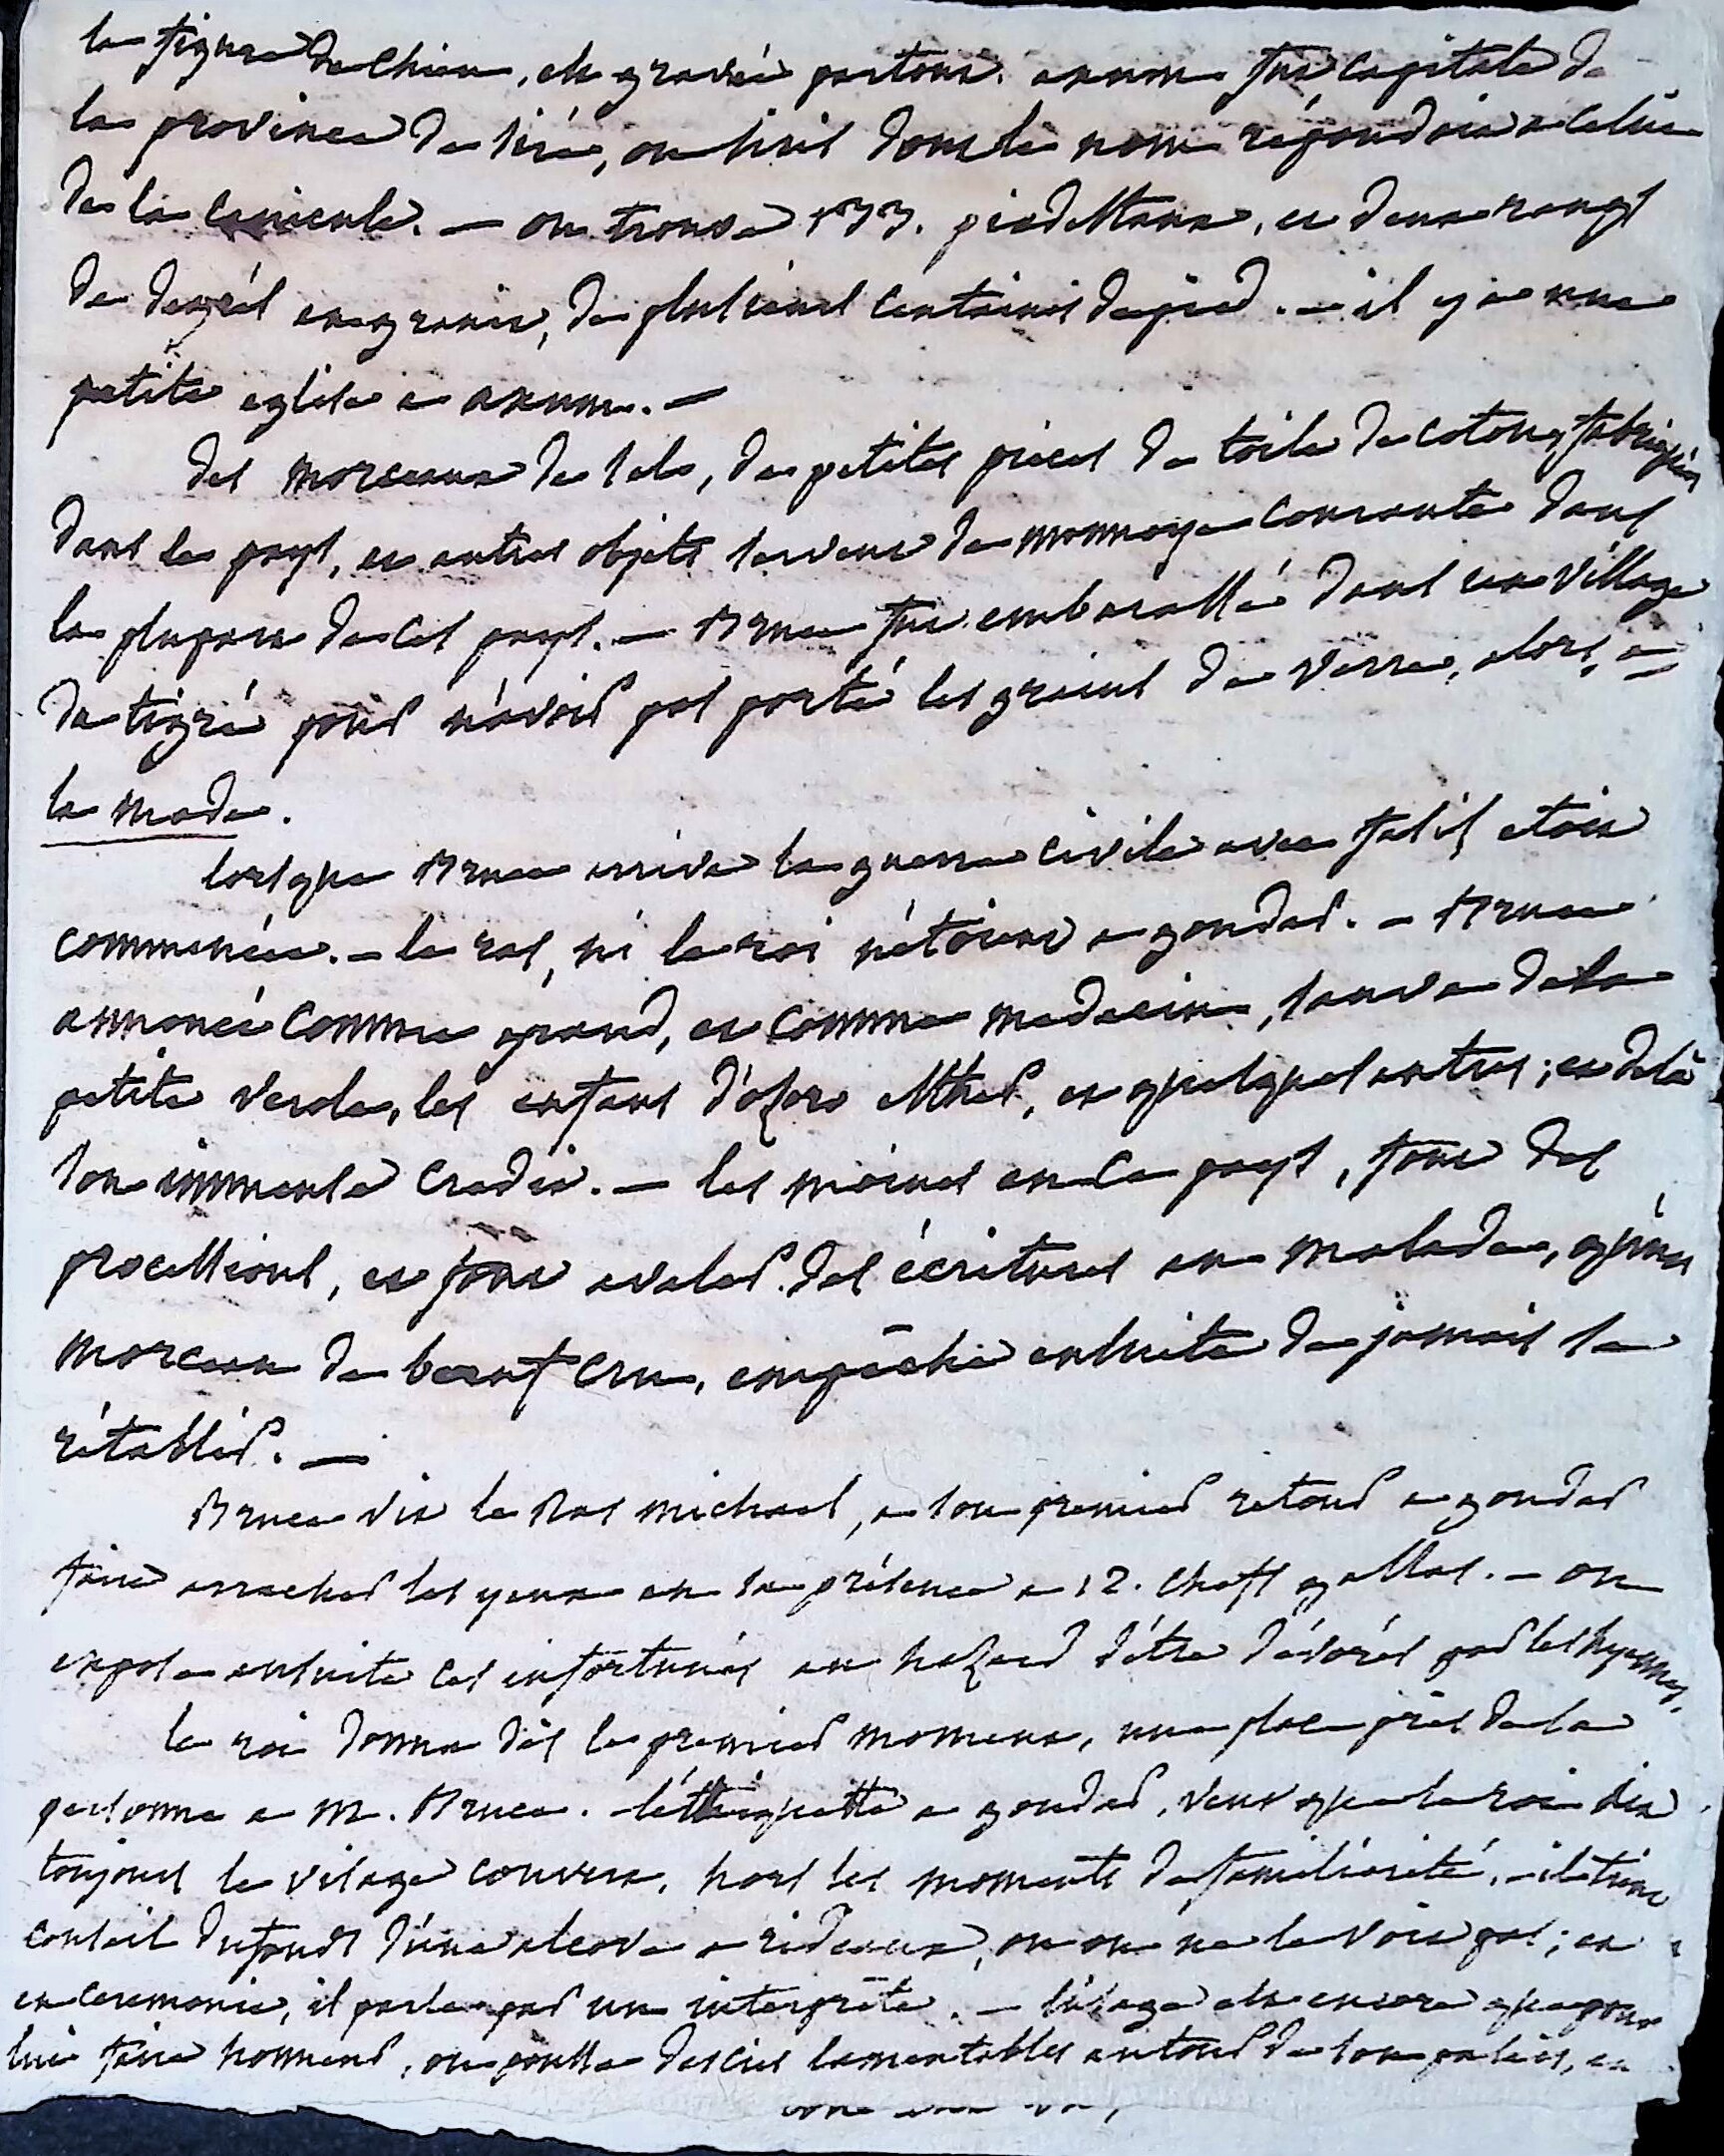 la figure de chien, est gravée partout. axum fut capitale de
la province de siré, ou siris dont le nom répondoit a celui
de la canicule. — on trouve 133. piedestaux, et deux rangs
de degrés en granit, de plusieurs centaines de pied. — il y a une
petite eglise a axum. —
des morceaux de sels, de petites pièces de toile de coton, fabriquées
dans le pays, et autres objets servent de monnoye courante dans
la plupart de ces pays. — Bruce fut embarassé dans un village
de tigré pour n'avoir pas porté les grains de verre, alors, a
la mode.
lorsque Bruce arriva la guerre civile avec fasil etoit
commencée. — le ras, ni le roi n'étoient a gondar. — Bruce
annoncé comme grand, et comme medecin, sauva de la
petite verole, les enfans d'ozoro esther, et quelques autres; et de là
son immense credit. — les moines en ce pays, font des
processions, et font avaler des écritures au malade, qu'un
morceau de beouf cru, empêche ensuite de jamais se
rétablir. —
Bruce vit le Ras michael, a son premier retour a gondar
faire arracher les yeux en sa présence a 12. chefs gallas. — on
exposa ensuite ces infortunés au hazard d'être dévorés par les hyennes.
le roi donna dès le premier moment, une place près de la
personne a M. Bruce. l'éttiquette a gondar, veut que le roi ait
toujours le visage couvert, hors les moments de familiarité. — il tient
conseil du fonds d'une alcove a rideaux, ou on ne le voit pas; et
en ceremonie, il parle par un interprête. — l'usage est encore que pour
lui faire honneur, on pousse des cris lamentables autour de son palais, et